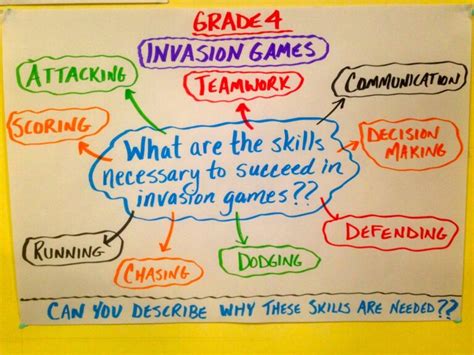 GRADE 4
INVASION GAMES
ATTACKING
TEAMWORK
COMMUNICATION
SCORING
DECISION
MAKING
What are the skills
necessary to succeed in
invasion games??
RUNNING
CHASING
DODGING
DEFENDING
CAN YOU DESCRIBE WHY THESE SKILLS ARE NEEDED??